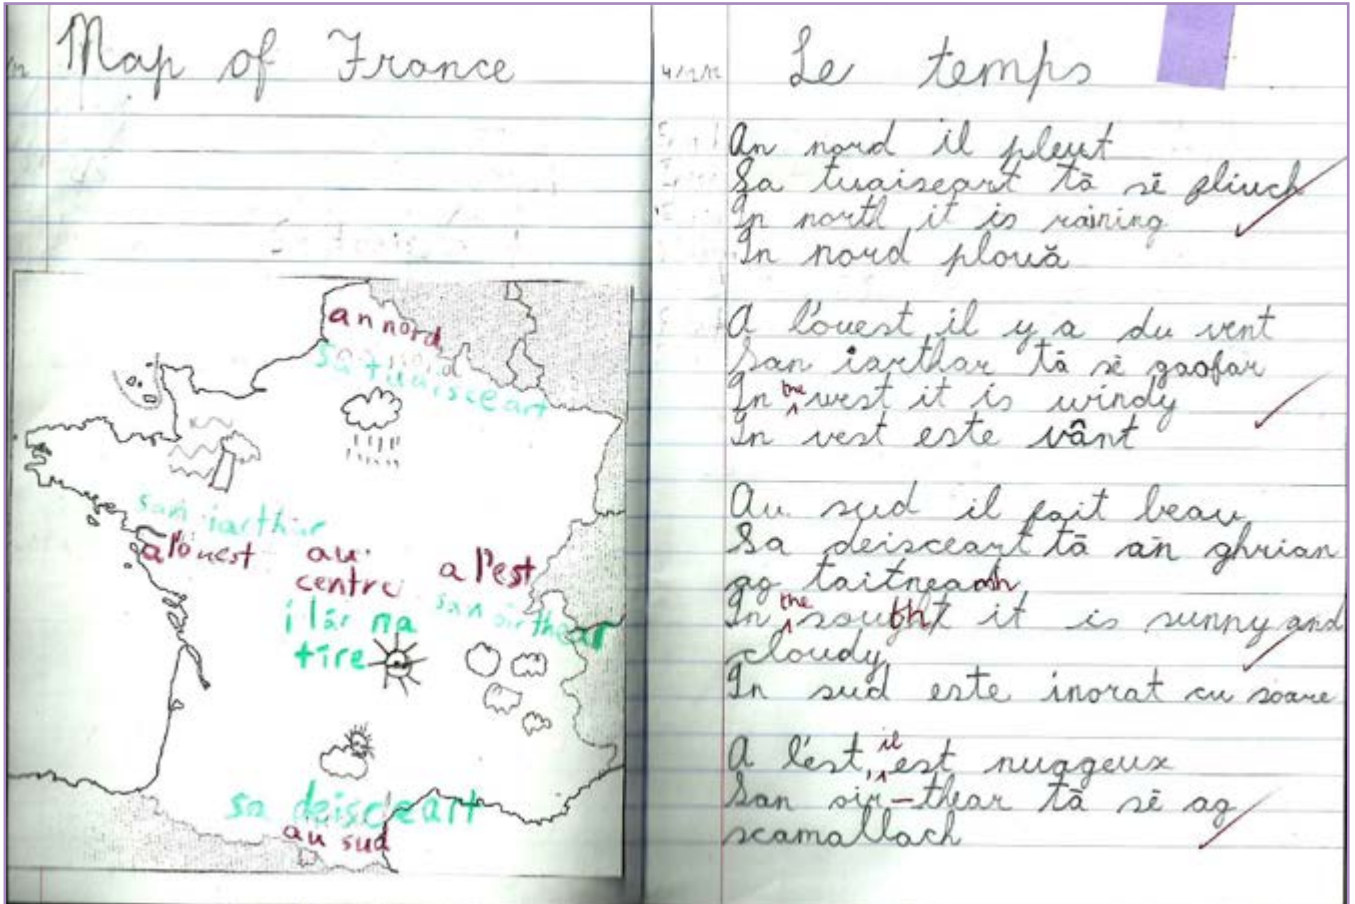 Map of France
an nord
sa tuaisceart
san iarthar
a l'ouest
au
centre
i lár na
tíre
a l'est
san oirthear
sa deisceart
au sud
Le temps
An nord il pleut
Sa tuaiseart tā sē pliuch
In north it is raining
In nord plouă
A l'ouest il y a du vent
San iarthar tā sē gaofar
In the west it is windy
In vest este vânt
Au sud il fait beau
Sa deisceart tā ān ghrian
ag taitneamh
In the south it is sunny and
cloudy
In sud este inorat cu soare
A l'est, il est nuageux
San oir-thear tā sē ag
scamallach